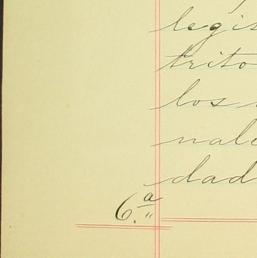 legis
trito
los
nale
dad
6.ª "